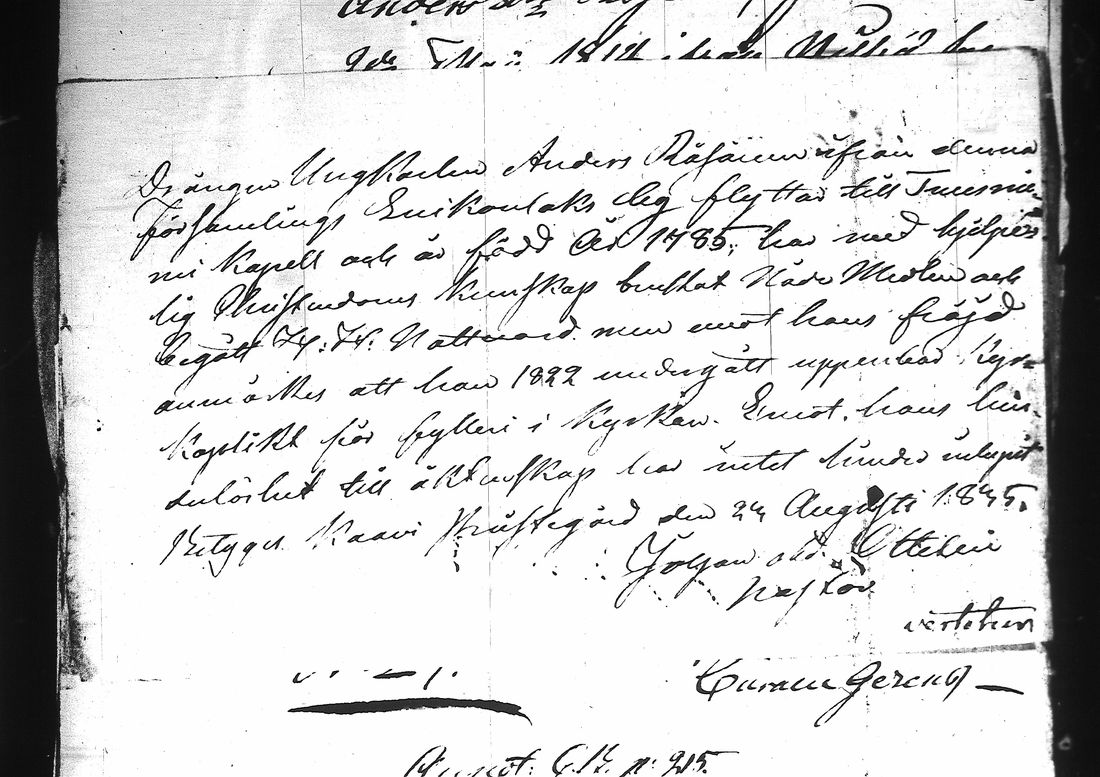 2de Maii 1812
Drängen Ungkarlen Anders Räsänen ifrån denna
Församlings Enikonlaks by flyttar till Tuusnie-
mi kapell och är född År 1785; har med hjelpe-
lig Christendoms kunskap bruktat Nåde Medlen och
begått H: H: Nattvard men emot hans fräjd
anmärkes att han 1822 undergått uppenbar Kyr-
koplikt för fylleri i Kyrkan. Emot hans hin-
derlöshet till äktenskap har intet hinder inlupit
Betygar. Kaavi Prästegård den 24 Augusti 1835.
Johan
Pastor
vertatur
Annot: p. 215.